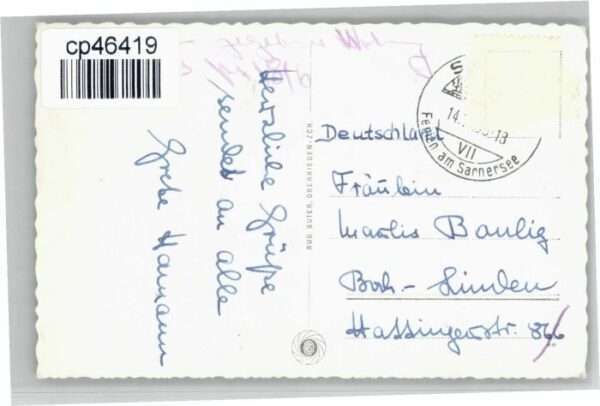 cp46419
Herzliche Grüße
sendet an alle
Grete Hamann
RUD. SUTER, OBERRIEDEN-ZCH.
14.
18
VII
Ferien am Sarnersee
Deutschland
Fräulein
Marlis Baulig
Boch-Linden
Hattingerstr.